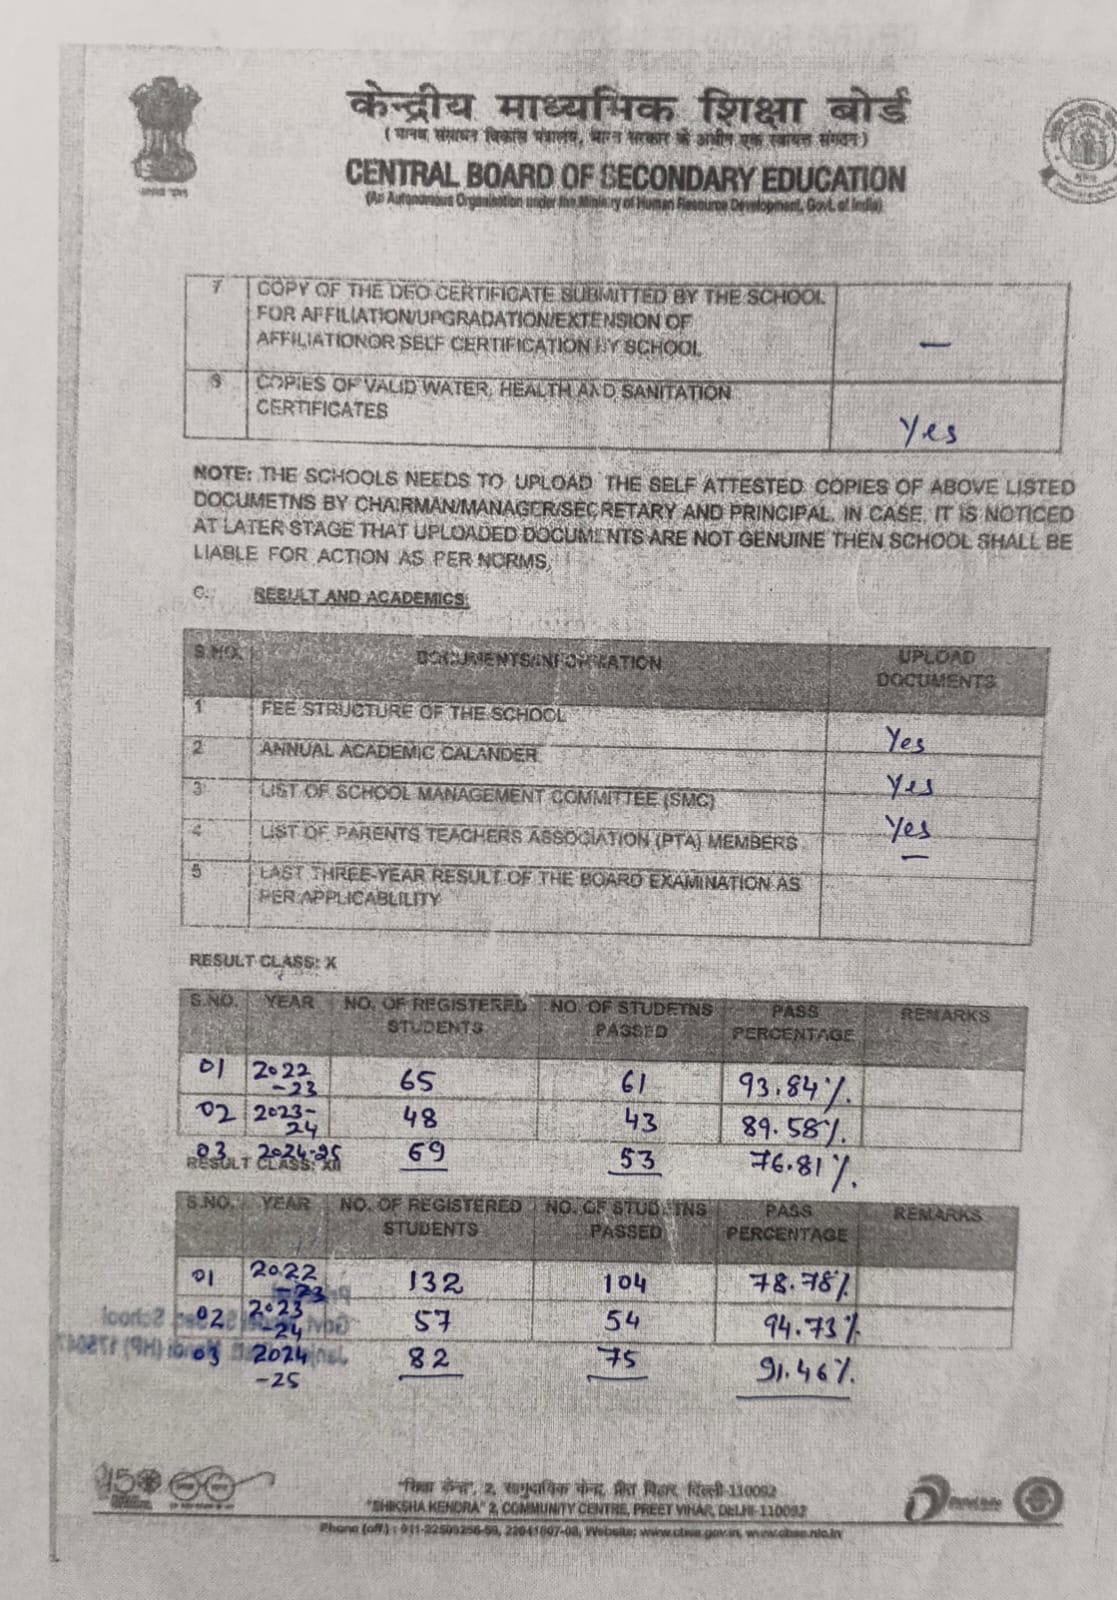 केन्द्रीय माध्यमिक शिक्षा बोर्ड
(मानव संसाधन विकास मंत्रालय, भारत सरकार के अधीन एक स्वायत्त संगठन)
CENTRAL BOARD OF SECONDARY EDUCATION
(An Autonomous Organisation under the Ministry of Human Resource Development, Govt. of India)
7 COPY OF THE DEO CERTIFICATE SUBMITTED BY THE SCHOOL
FOR AFFILIATION/UPGRADATION/EXTENSION OF
AFFILIATIONOR SELF CERTIFICATION BY SCHOOL —
8 COPIES OF VALID WATER, HEALTH AND SANITATION
CERTIFICATES Yes
NOTE: THE SCHOOLS NEEDS TO UPLOAD THE SELF ATTESTED COPIES OF ABOVE LISTED
DOCUMETNS BY CHAIRMAN/MANAGER/SECRETARY AND PRINCIPAL. IN CASE, IT IS NOTICED
AT LATER STAGE THAT UPLOADED DOCUMENTS ARE NOT GENUINE THEN SCHOOL SHALL BE
LIABLE FOR ACTION AS PER NORMS.
C. RESULT AND ACADEMICS:
S.NO. DOCUMENTS/INFORMATION UPLOAD DOCUMENTS
1 FEE STRUCTURE OF THE SCHOOL Yes
2 ANNUAL ACADEMIC CALANDER Yes
3 LIST OF SCHOOL MANAGEMENT COMMITTEE (SMC) Yes
4 LIST OF PARENTS TEACHERS ASSOCIATION (PTA) MEMBERS —
5 LAST THREE-YEAR RESULT OF THE BOARD EXAMINATION AS
PER APPLICABLILITY
RESULT CLASS: X
S.NO. YEAR NO. OF REGISTERED STUDENTS NO. OF STUDETNS PASSED PASS PERCENTAGE REMARKS
01 2022-23 65 61 93.84%.
02 2023-24 48 43 89.58%.
03 2024-25 69 53 76.81%.
RESULT CLASS: XII
S.NO. YEAR NO. OF REGISTERED STUDENTS NO. OF STUDETNS PASSED PASS PERCENTAGE REMARKS
01 2022-23 132 104 78.78%
02 2023-24 57 54 94.73%
03 2024-25 82 75 91.46%.
150
"शिक्षा केन्द्र", 2, सामुदायिक केन्द्र, प्रीत विहार, दिल्ली-110092
"SHIKSHA KENDRA" 2, COMMUNITY CENTRE, PREET VIHAR, DELHI-110092
Website: www.cbse.gov.in, www.cbse.nic.in